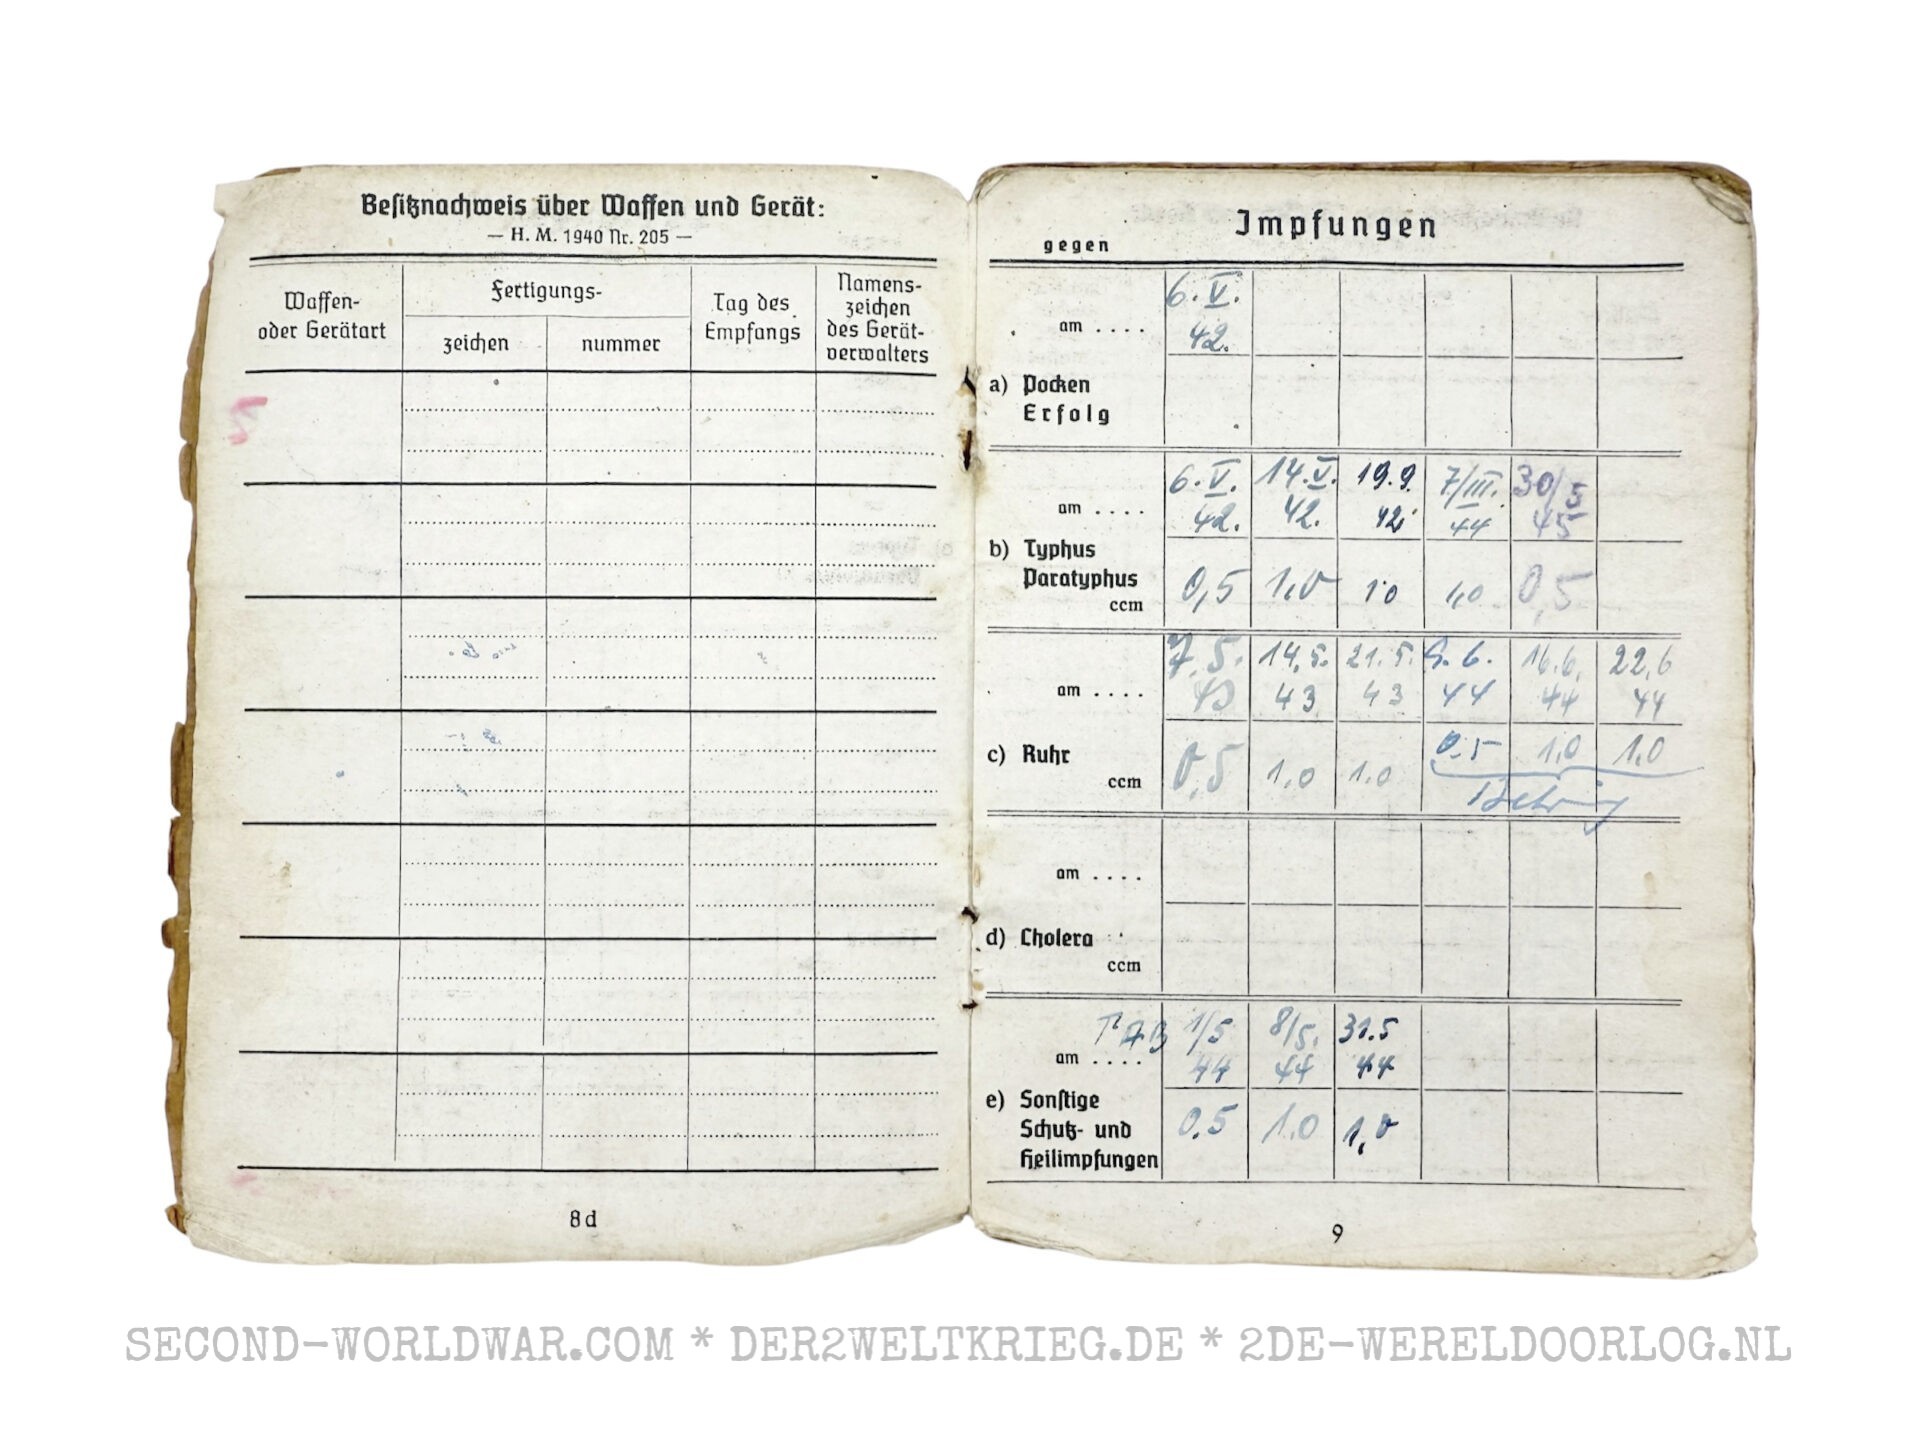 Besitznachweis über Waffen und Gerät:
— H. M. 1940 Nr. 205 —
Waffen-
oder Gerätart
Fertigungs-
zeichen
nummer
Tag des
Empfangs
Namens-
zeichen
des Gerät-
verwalters
8d
Impfungen
gegen
6.V. 
am . . . . 42.
a) Pocken
Erfolg
6.V. 14.V. 19.9. 7/III. 30/5
am . . . . 42. 42. 42 44 45
b) Typhus
Paratyphus
ccm 0,5 1,0 1.0 1,0 0,5
7.5. 14.5. 21.5. 9.6. 16.6. 22.6
am . . . . 43 43 43 44 44 44
c) Ruhr
ccm 0,5 1.0 1.0 0.5 1.0 1.0
Behring
am . . . .
d) Cholera
ccm
TAB 1/5 8/5. 31.5
am . . . . 44 44 44
e) Sonstige
Schutz- und
Heilimpfungen 0.5 1.0 1,0
9
SECOND-WORLDWAR.COM * DER2WELTKRIEG.DE * 2DE-WERELDOORLOG.NL